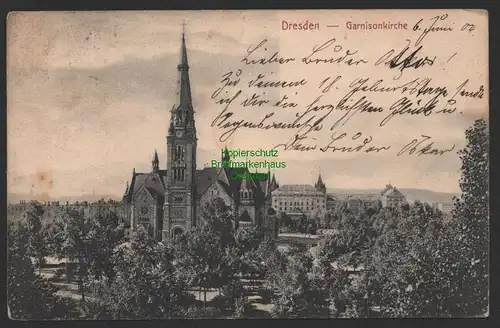 Dresden — Garnisonkirche
6. Juni 02
Lieber Bruder Oskar!
Zu deinem 18. Geburtstage sende
ich dir die herzlichsten Glück u.
Segenswünsche
Dein Bruder Oskar
Kopierschutz
Briefmarkenhaus